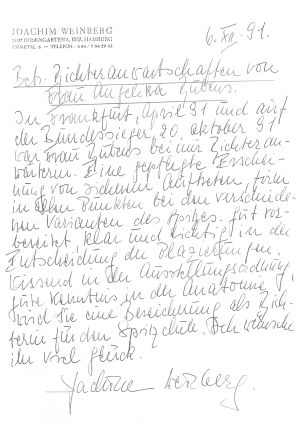 JOACHIM WEINBERG
2107 ROSENGARTEN 5, BEZ. HAMBURG
TELEFON
6. XII. 91.
Betr. Richteranwartschaften von
Frau Angelika Zubens.
In Frankfurt, April 91 und auf
der Bundessieger, 20. Oktober 91
war Frau bei mir Richteran-
wärterin. Eine gepflegte Erschei-
nung von Auftreten, firm
in allen Punkten bei den verschiede-
nen Varianten des Spitzes. Gut vor-
bereitet, klar und richtig in der
Entscheidung der Plazierungen.
Wissend in der Ausstellungsordnung,
gute Kenntnis in der Anatomie,
wird sie eine Bereicherung als Rich-
terin für den Spitzclub. Ich wünsche
ihr viel Glück.
Joachim Weinberg.